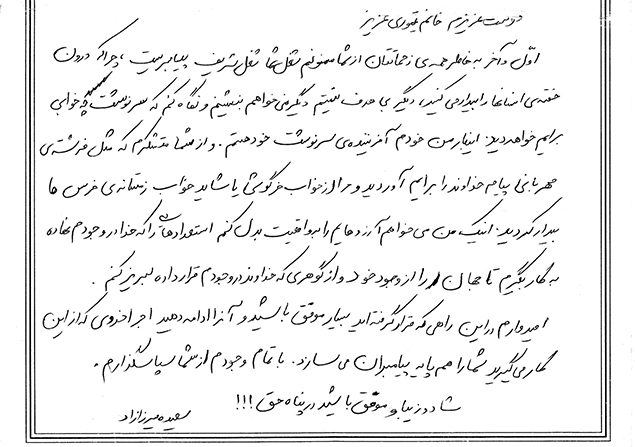 دوست عزیزم خانم تیموری عزیز
اوّل و آخر به خاطر همه‌ی زحماتتان از شما ممنونم شغل شما شغل شریف پیامبریست، چرا که درون
خفته‌ی انسانها را بیدار می‌کنید، دیگر بی هدف نیستم دیگر نمی‌خواهم بنشینم و نگاه کنم که سرنوشت چه خوابی
برایم خواهد دید. اینبار من خودم آفریننده‌ی سرنوشت خود هستم. و از شما متشکرم که مثل فرشته‌ی
مهربانی پیام خداوند را برایم آوردید و مرا از خواب خرگوشی یا شاید خواب زمستانه‌ی خرس ها
بیدار کردید. اینک من می‌خواهم آرزوهایم را به واقعیت بدل کنم استعدادهایی را که خدا در وجودم نهاده
به کار بگیرم تا جهان را از وجود خود و از گوهری که خداوند در وجودم قرار داده لبریز کنم.
امیدوارم در این راهی که قرار گرفته‌اید بسیار موفق باشید و آنرا ادامه دهید اجر اخروی که از این
کار می‌گیرید شما را هم پایه پیامبران می‌سازد. با تمام وجودم از شما سپاسگذارم.
شاد و زیبا و موفق باشید در پناه حق !!!
سعیده میرزازاد